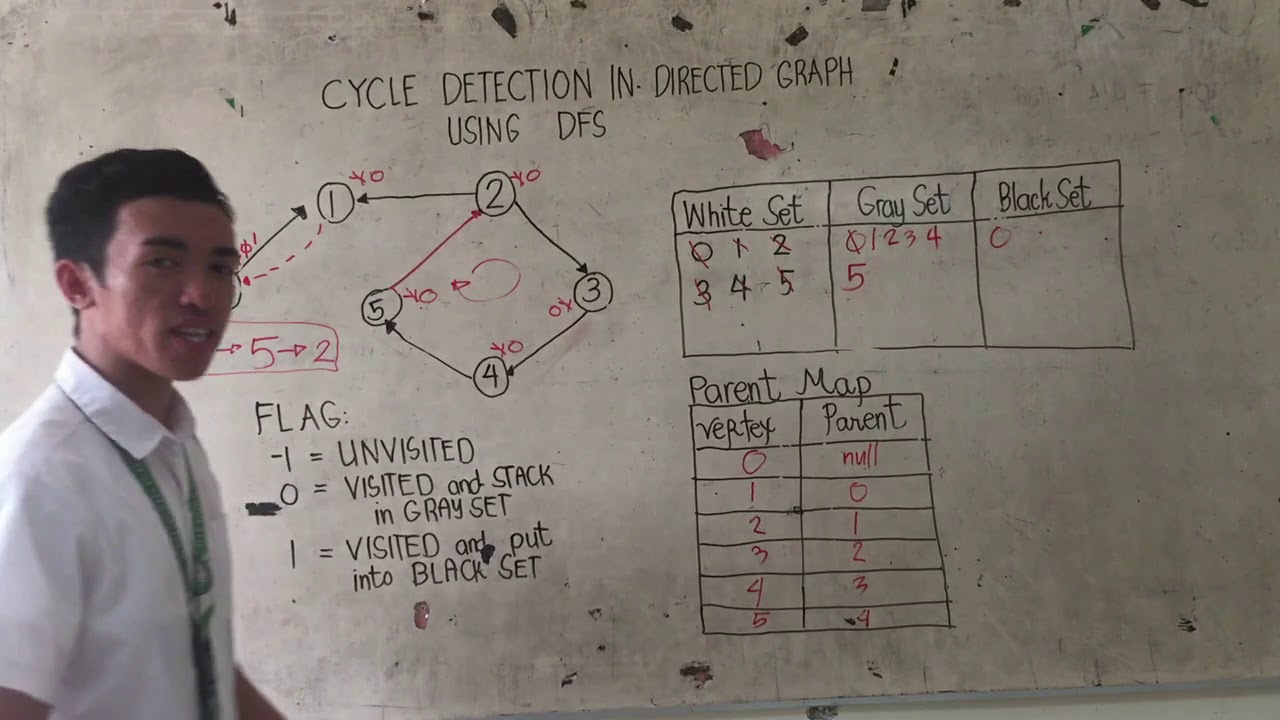 CYCLE DETECTION IN DIRECTED GRAPH :
USING DFS
1
2
3
4
5
→ 5 → 2
FLAG:
-1 = UNVISITED
0 = VISITED and STACK
in GRAY SET
1 = VISITED and put
into BLACK SET
White Set Gray Set Black Set
0 1 2 0 1 2 3 4 0
3 4 5 5
Parent Map
Vertex Parent
0 null
1 0
2 1
3 2
4 3
5 4